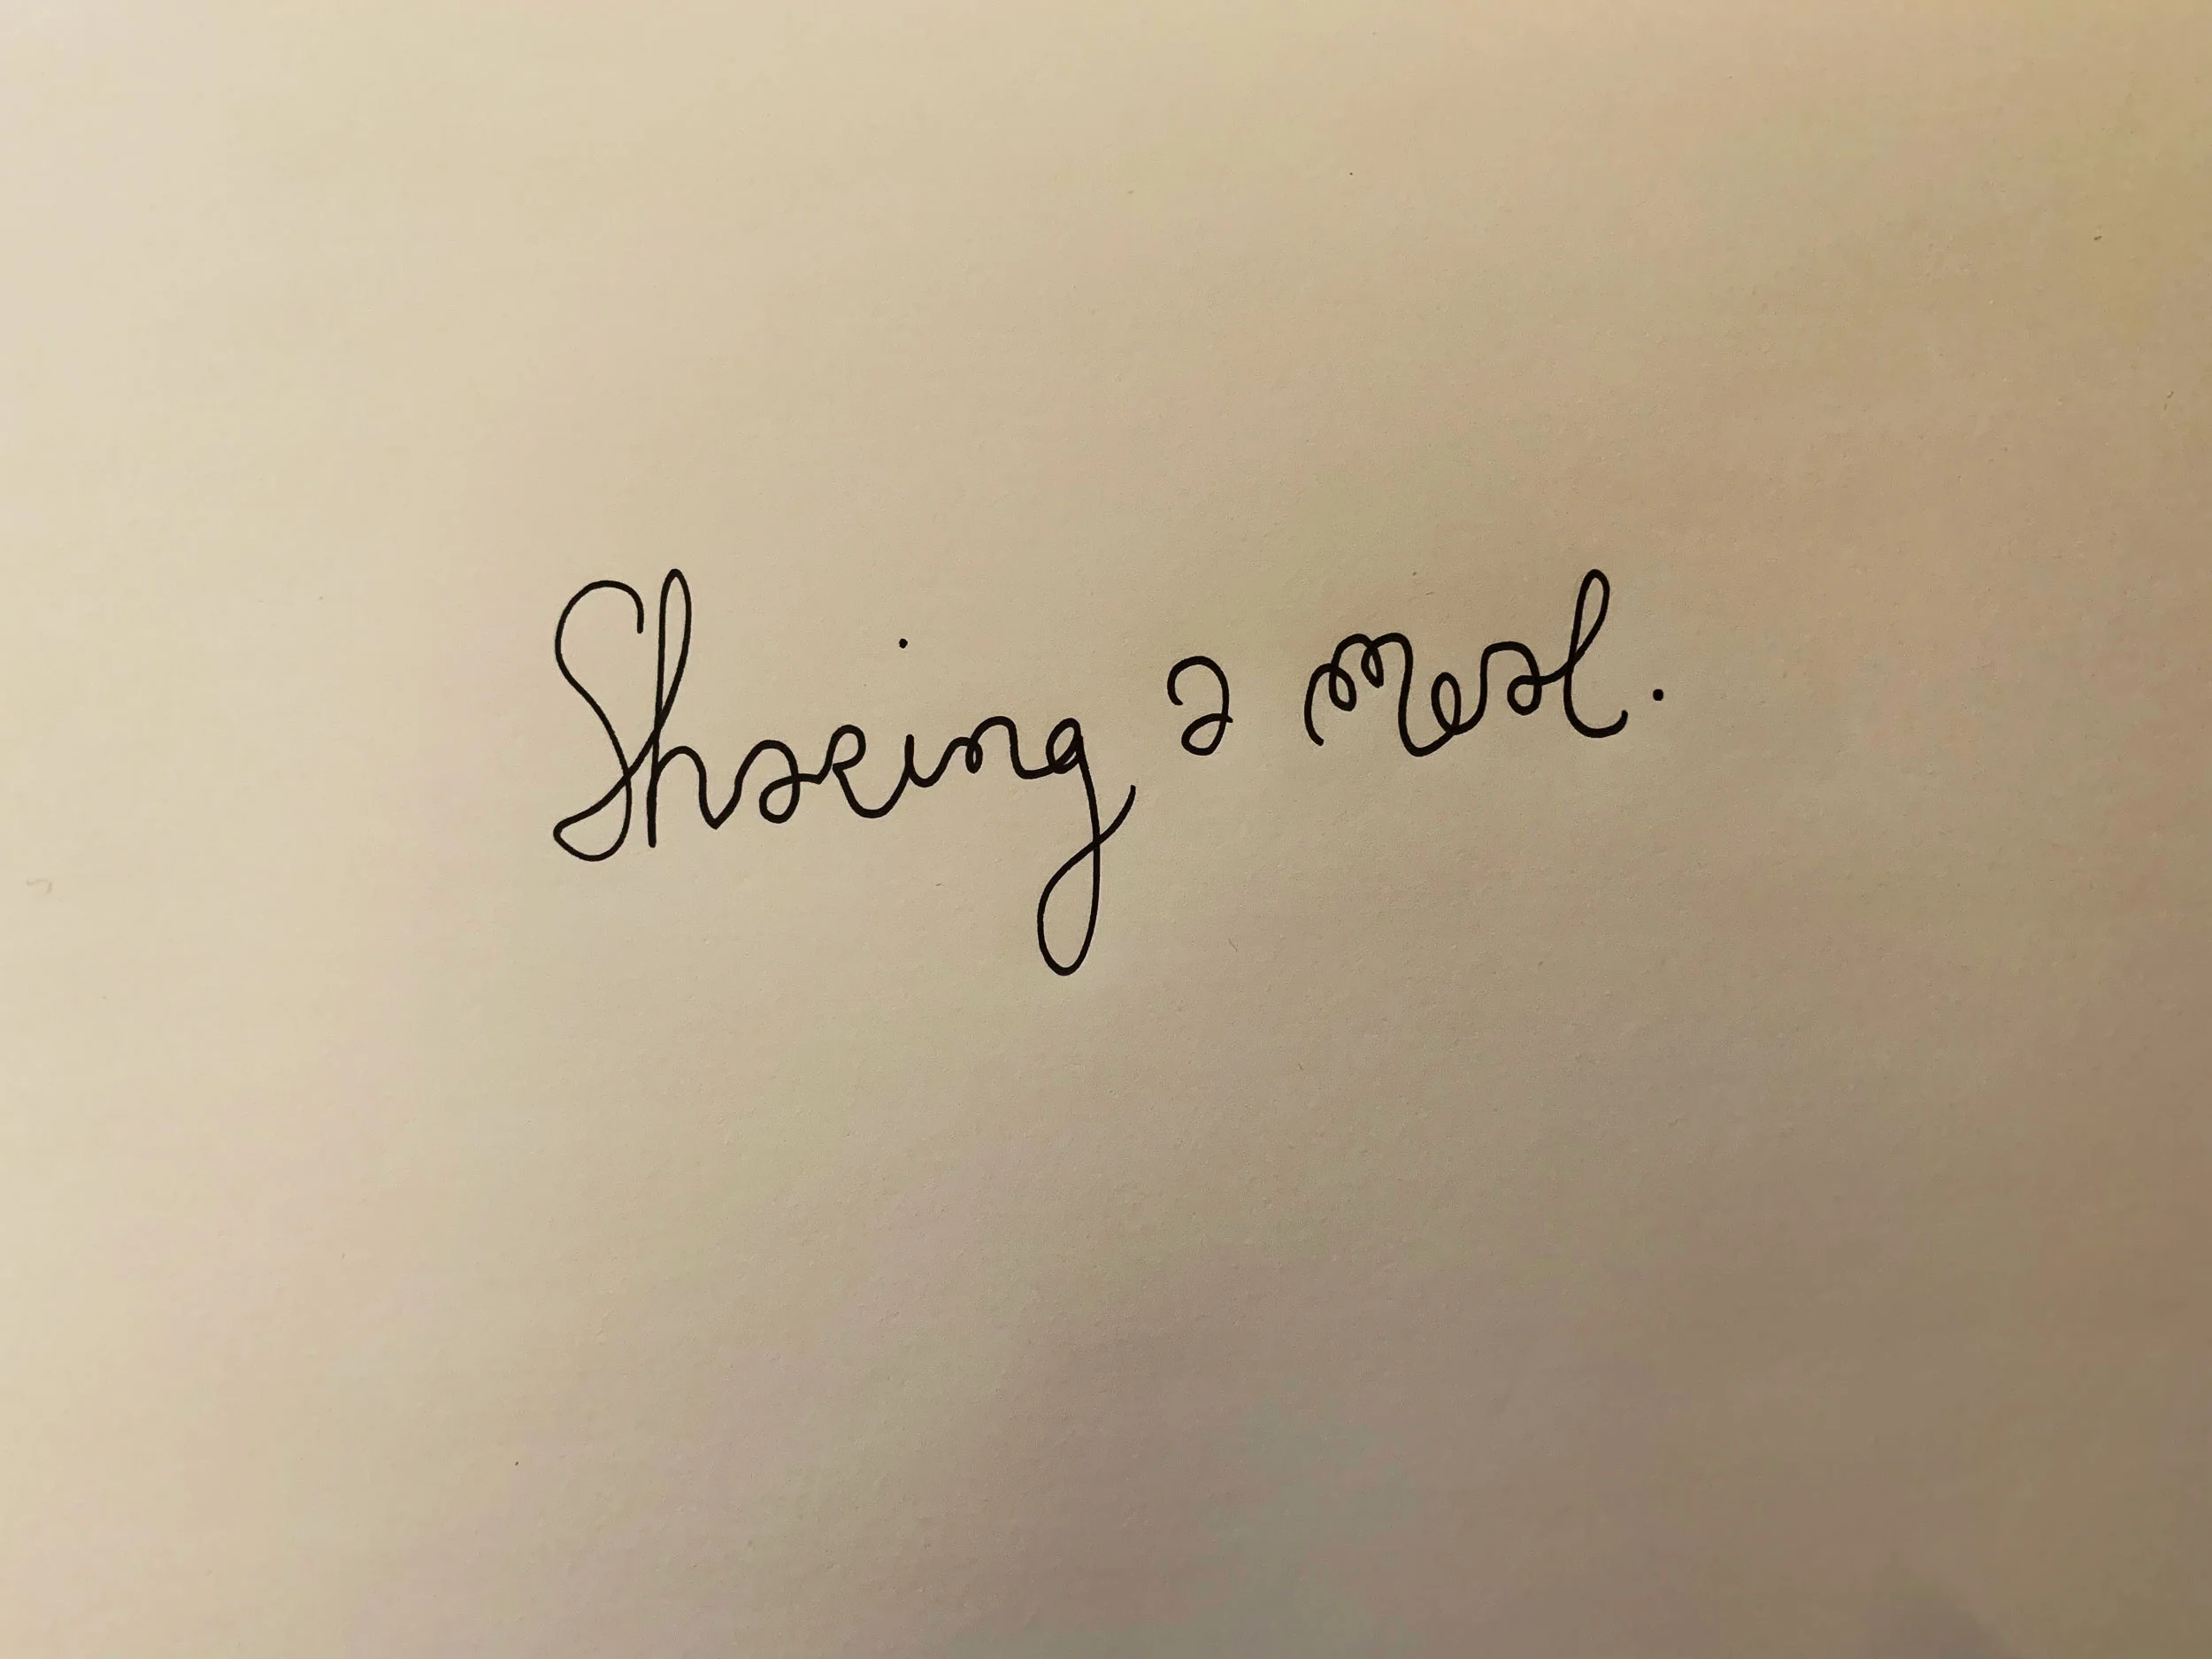 Sharing a meal.